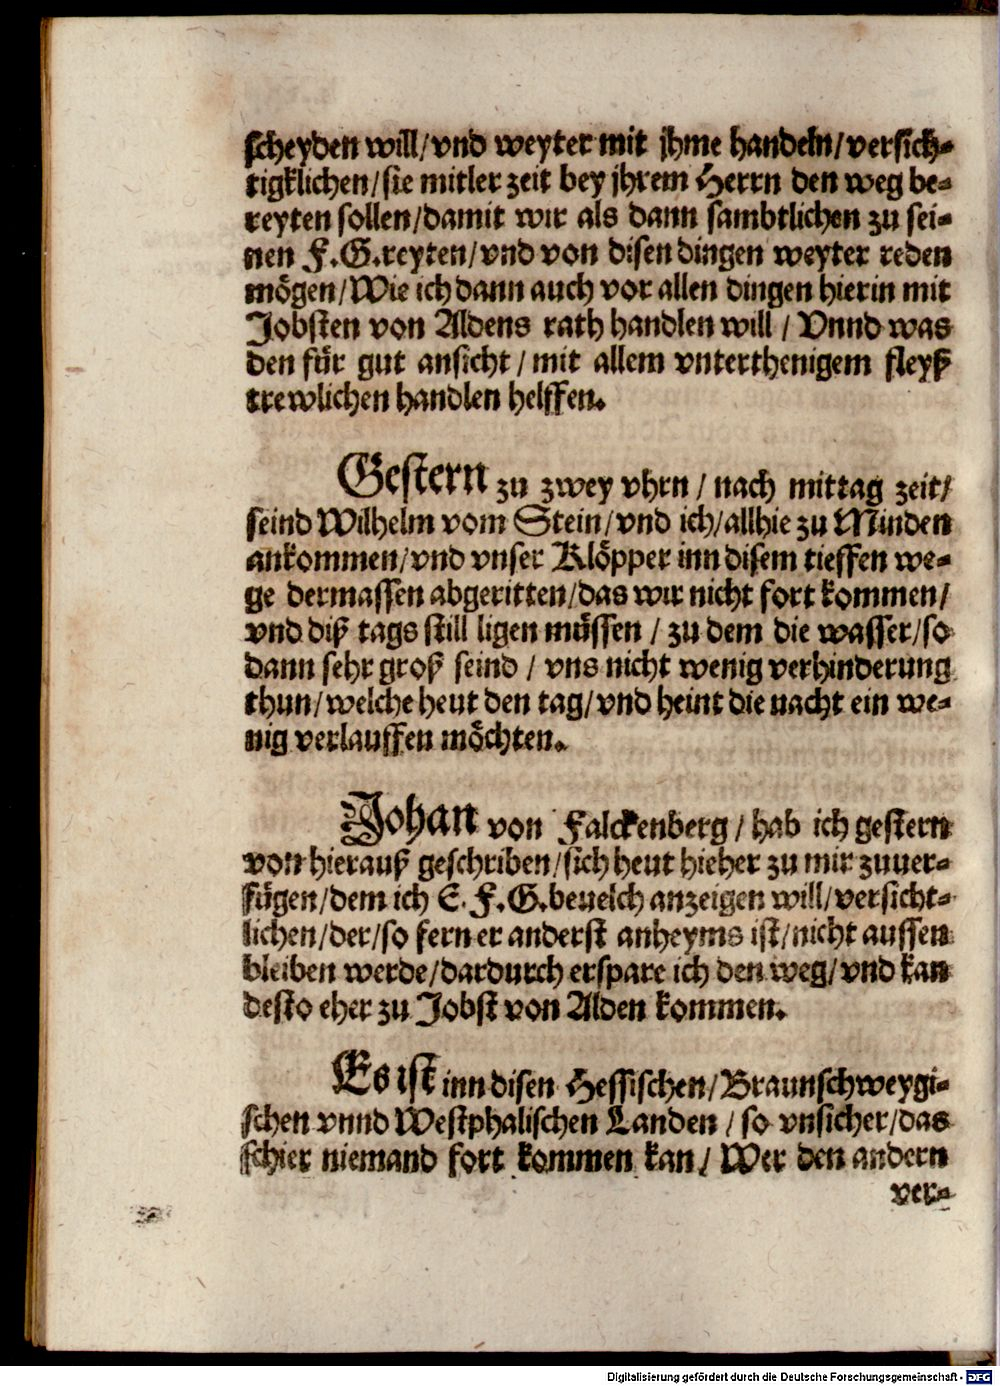 scheyden will/vnd weyter mit jhme handeln/versich-
tigklichen/sie mitler zeit bey jhrem Herrn den weg be-
reyten sollen/damit wir als dann sambtlichen zu sei-
nen F.G.reyten/vnd von disen dingen weyter reden
mögen/Wie ich dann auch vor allen dingen hierin mit
Jobsten von Aldens rath handlen will/Vnnd was
den für gut ansicht/mit allem vnterthenigem fleyß
trewlichen handlen helffen.
Gestern zu zwey vhrn/nach mittag zeit/
seind Wilhelm vom Stein/vnd ich/allhie zu Minden
ankommen/vnd vnser Klöpper inn disem tieffen we-
ge dermassen abgeritten/das wir nicht fort kommen/
vnd diß tags still ligen müssen/zu dem die wasser/so
dann sehr groß seind/vns nicht wenig verhinderung
thun/welche heut den tag/vnd heint die nacht ein we-
nig verlauffen möchten.
Johan von Falckenberg/hab ich gestern
von hierauß geschriben/sich heut hieher zu mir zuuer-
fügen/dem ich S.F.G.beuelch anzeigen will/versicht-
lichen/der/so fern er anderst anheyms ist/nicht aussen
bleiben werde/dardurch erspare ich den weg/vnd kan
desto eher zu Jobst von Alden kommen.
Es ist inn disen Hessischen/Braunschweygi-
schen vnnd Westphalischen Landen/so vnsicher/das
schier niemand fort kommen kan/Wer den andern
ver-
Digitalisierung gefördert durch die Deutsche Forschungsgemeinschaft - DFG